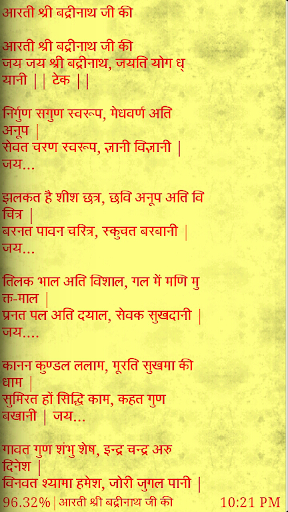 आरती श्री बद्रीनाथ जी की
आरती श्री बद्रीनाथ जी की
जय जय श्री बद्रीनाथ, जयति योग ध्
यानी || टेक ||
निर्गुण सगुण स्वरूप, मेधवर्ण अति
अनूप |
सेवत चरण स्वरूप, ज्ञानी विज्ञानी |
जय...
झलकत है शीश छत्र, छवि अनूप अति वि
चित्र |
बरनत पावन चरित्र, स्कुचत बरबानी |
जय...
तिलक भाल अति विशाल, गल में मणि मु
क्त-माल |
प्रनत पल अति दयाल, सेवक सुखदानी |
जय....
कानन कुण्डल ललाम, मूरति सुखमा की
धाम |
सुमिरत हों सिद्धि काम, कहत गुण
बखानी | जय...
गावत गुण शंभु शेष, इन्द्र चन्द्र अरु
दिनेश |
विनवत श्यामा हमेश, जोरी जुगल पानी |
96.32% | आरती श्री बद्रीनाथ जी की 10:21 PM